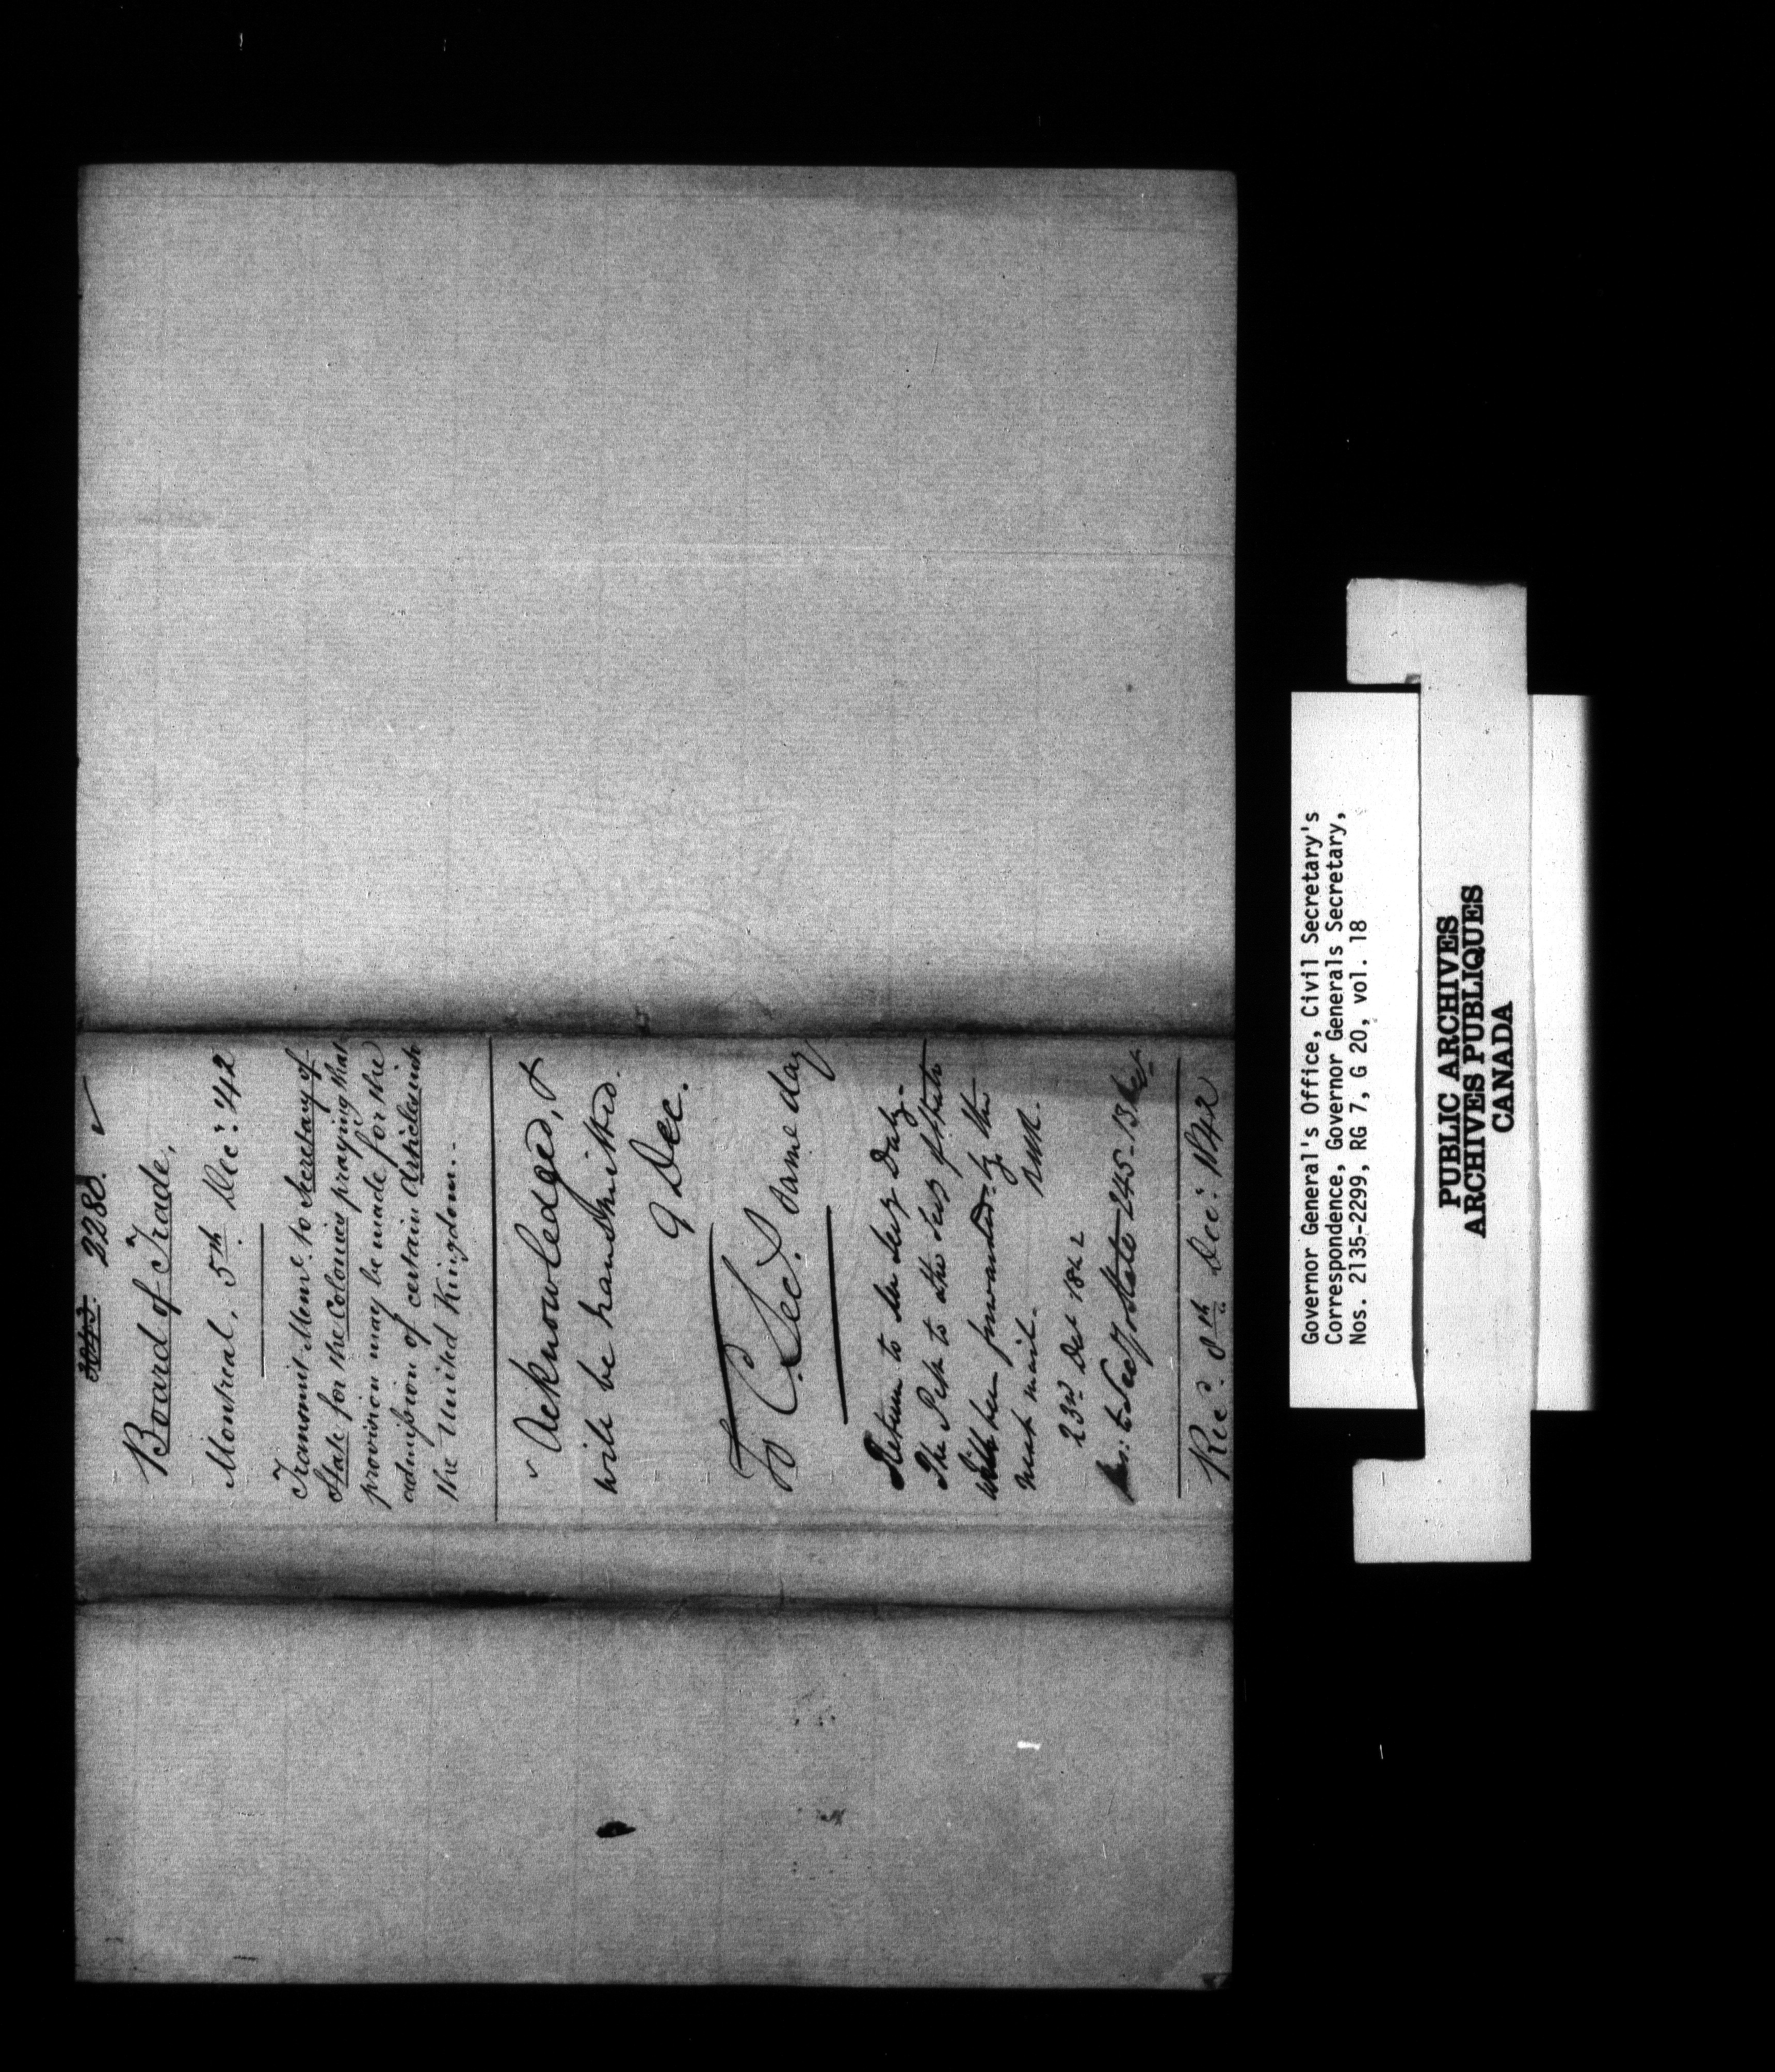 2280.
Board of Trade,
Montreal, 5th Dec: 42
Transmit Meml. to Secretary of
State for the Colonies praying that
provision may be made for the
admission of certain articles into
the United Kingdom.
Acknowledged, &
will be transmitted.
9 Dec.
To C. Sec. same day
Return to Mr Secy Daly.
The Petn to the Secy of State
will be forwarded by the
next mail.
23rd Dec 1842
to Sec of State 245-13
Recd. 8th Dec: 1842
Governor General's Office, Civil Secretary's
Correspondence, Governor Generals Secretary,
Nos. 2135-2299, RG 7, G 20, vol. 18
PUBLIC ARCHIVES
ARCHIVES PUBLIQUES
CANADA